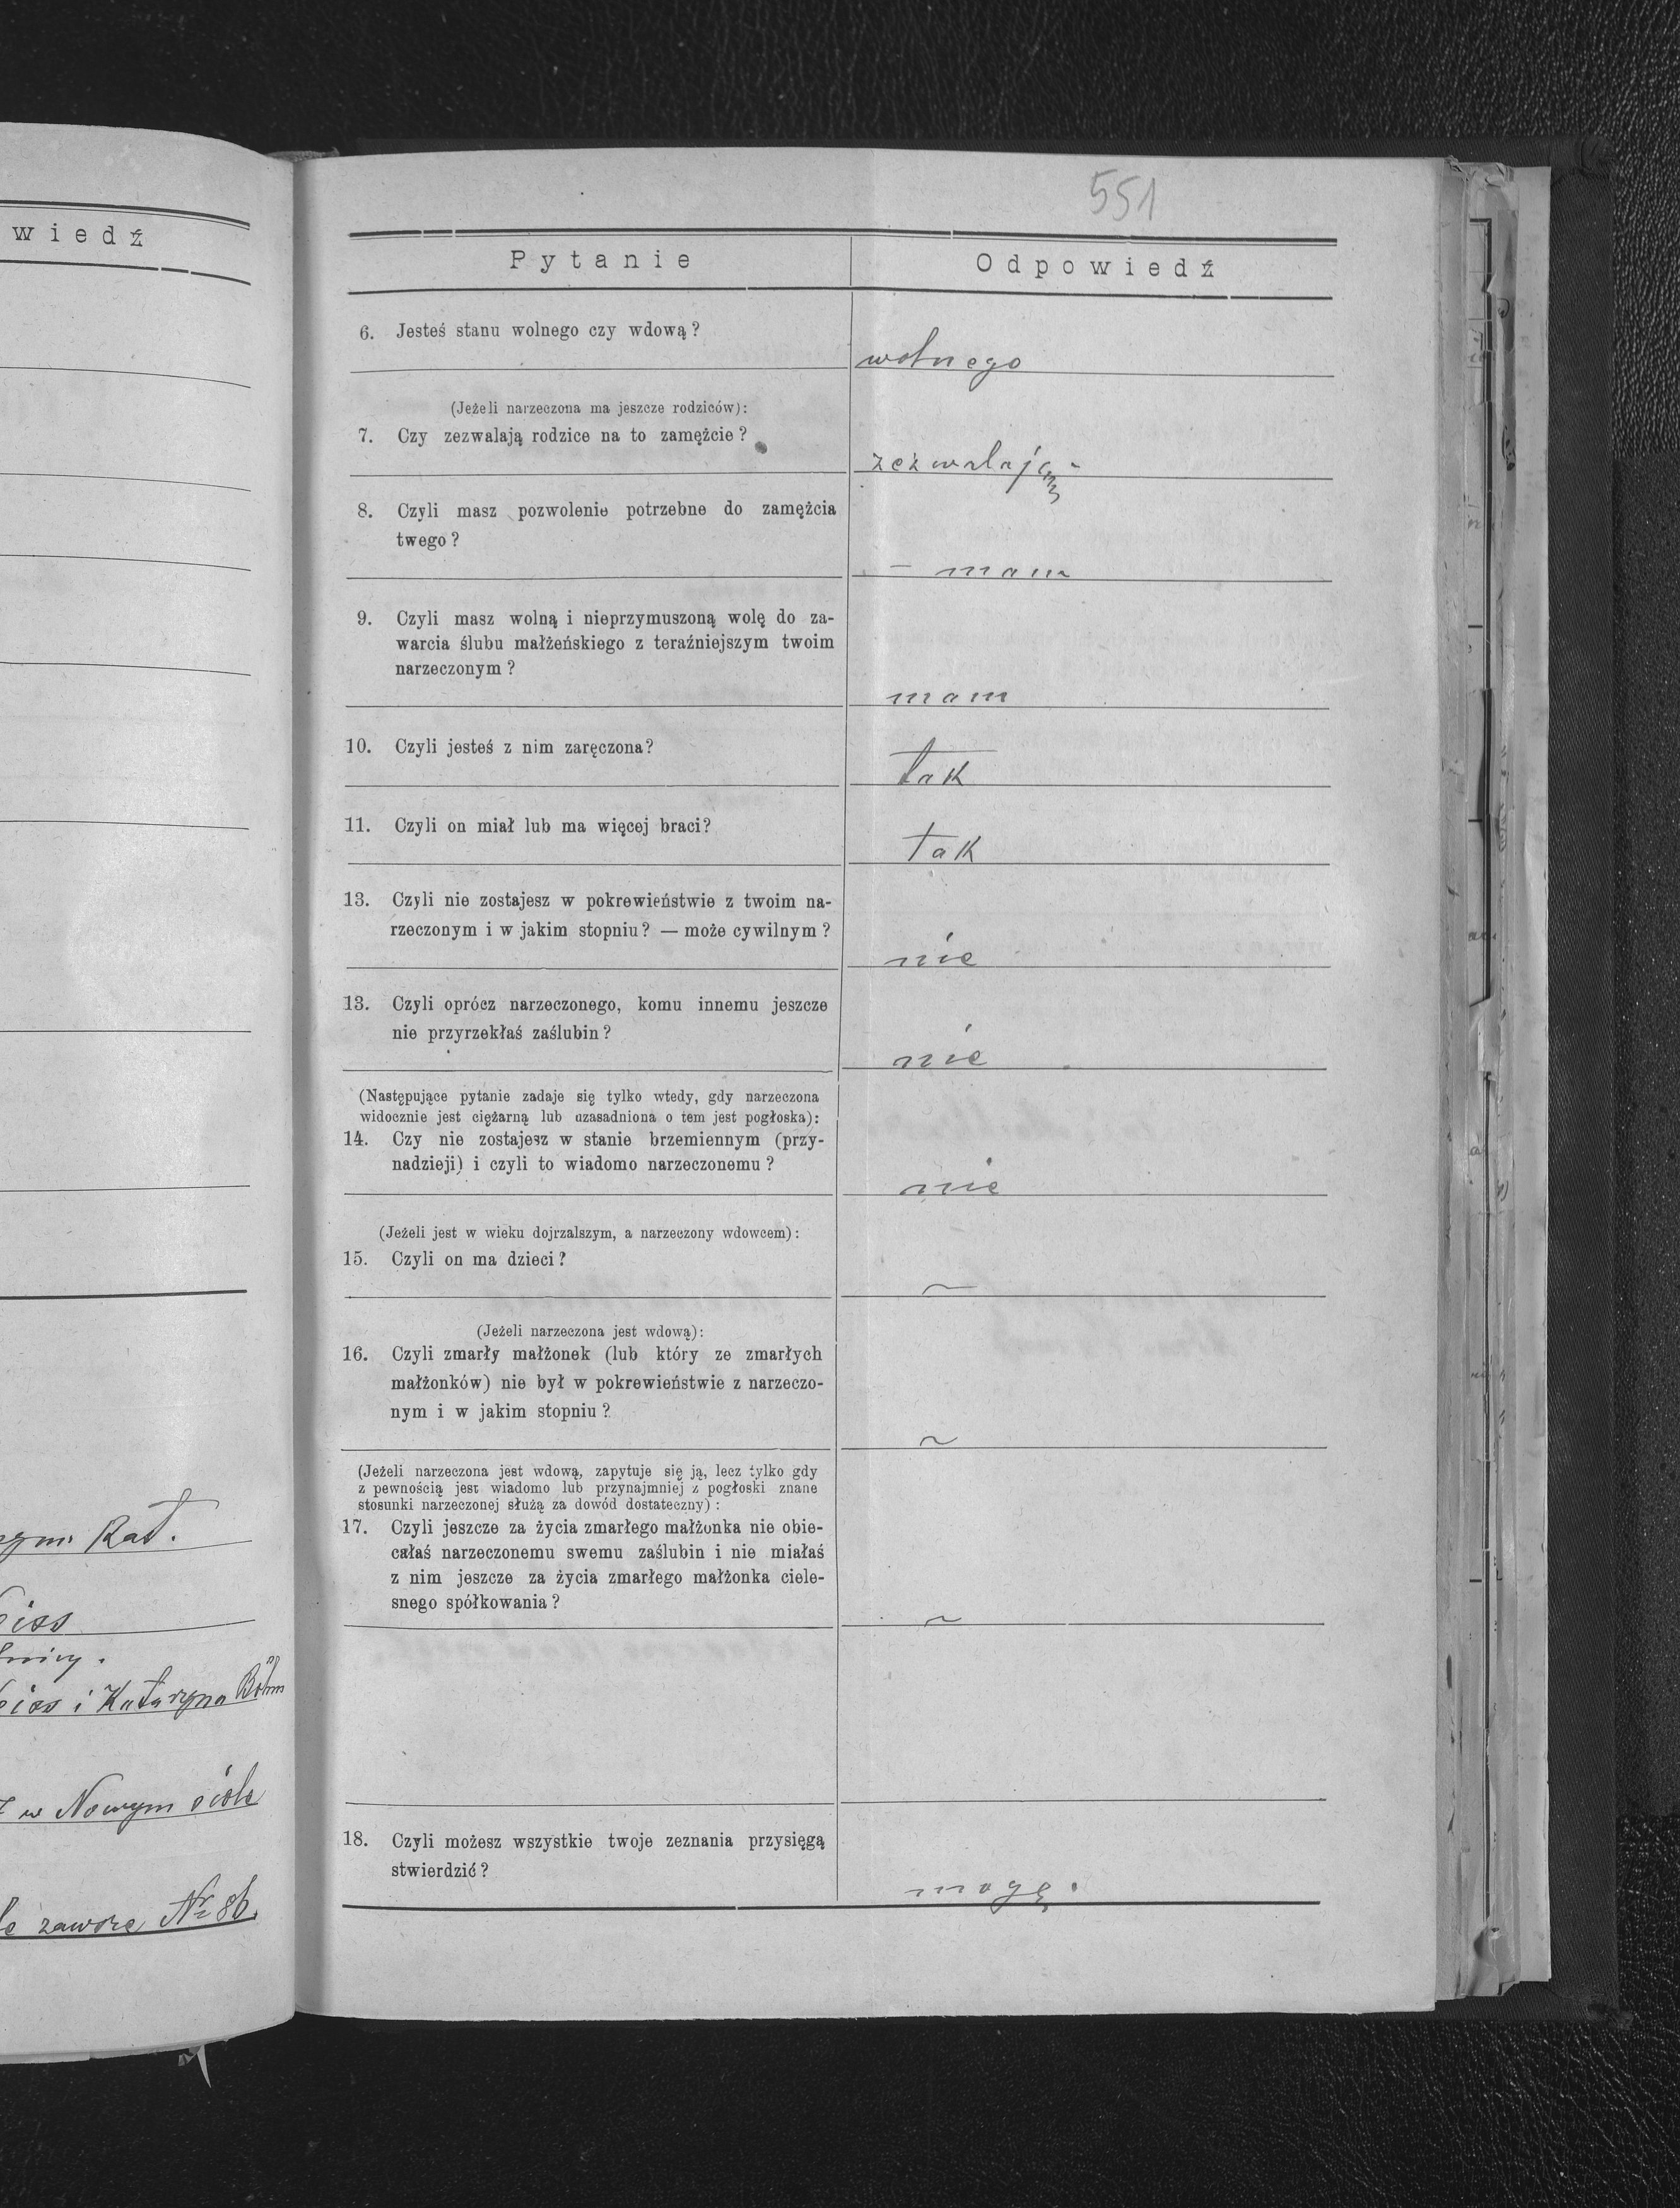 wiedź
Rzym. Kat.
i Katarzyna Böhm
w Nowym siole
zawsze № 86.
551
Pytanie
Odpowiedź
6. Jesteś stanu wolnego czy wdową?
wolnego
(Jeżeli narzeczona ma jeszcze rodziców):
7. Czy zezwalają rodzice na to zamężcie?
zezwalają
8. Czyli masz pozwolenie potrzebne do zamężcia
twego?
– mam
9. Czyli masz wolną i nieprzymuszoną wolę do za-
warcia ślubu małżeńskiego z teraźniejszym twoim
narzeczonym?
mam
10. Czyli jesteś z nim zaręczona?
tak
11. Czyli on miał lub ma więcej braci?
tak
13. Czyli nie zostajesz w pokrewieństwie z twoim na-
rzeczonym i w jakim stopniu? — może cywilnym?
nie
13. Czyli oprócz narzeczonego, komu innemu jeszcze
nie przyrzekłaś zaślubin?
nie
(Następujące pytanie zadaje się tylko wtedy, gdy narzeczona
widocznie jest ciężarną lub uzasadniona o tem jest pogłoska):
14. Czy nie zostajesz w stanie brzemiennym (przy-
nadzieji) i czyli to wiadomo narzeczonemu?
nie
(Jeżeli jest w wieku dojrzalszym, a narzeczony wdowcem):
15. Czyli on ma dzieci?
~
(Jeżeli narzeczona jest wdową):
16. Czyli zmarły małżonek (lub który ze zmarłych
małżonków) nie był w pokrewieństwie z narzeczo-
nym i w jakim stopniu?
~
(Jeżeli narzeczona jest wdową, zapytuje się ją, lecz tylko gdy
z pewnością jest wiadomo lub przynajmniej z pogłoski znane
stosunki narzeczonej służą za dowód dostateczny):
17. Czyli jeszcze za życia zmarłego małżonka nie obie-
całaś narzeczonemu swemu zaślubin i nie miałaś
z nim jeszcze za życia zmarłego małżonka ciele-
snego spółkowania?
~
18. Czyli możesz wszystkie twoje zeznania przysięgą
stwierdzić?
mogę.